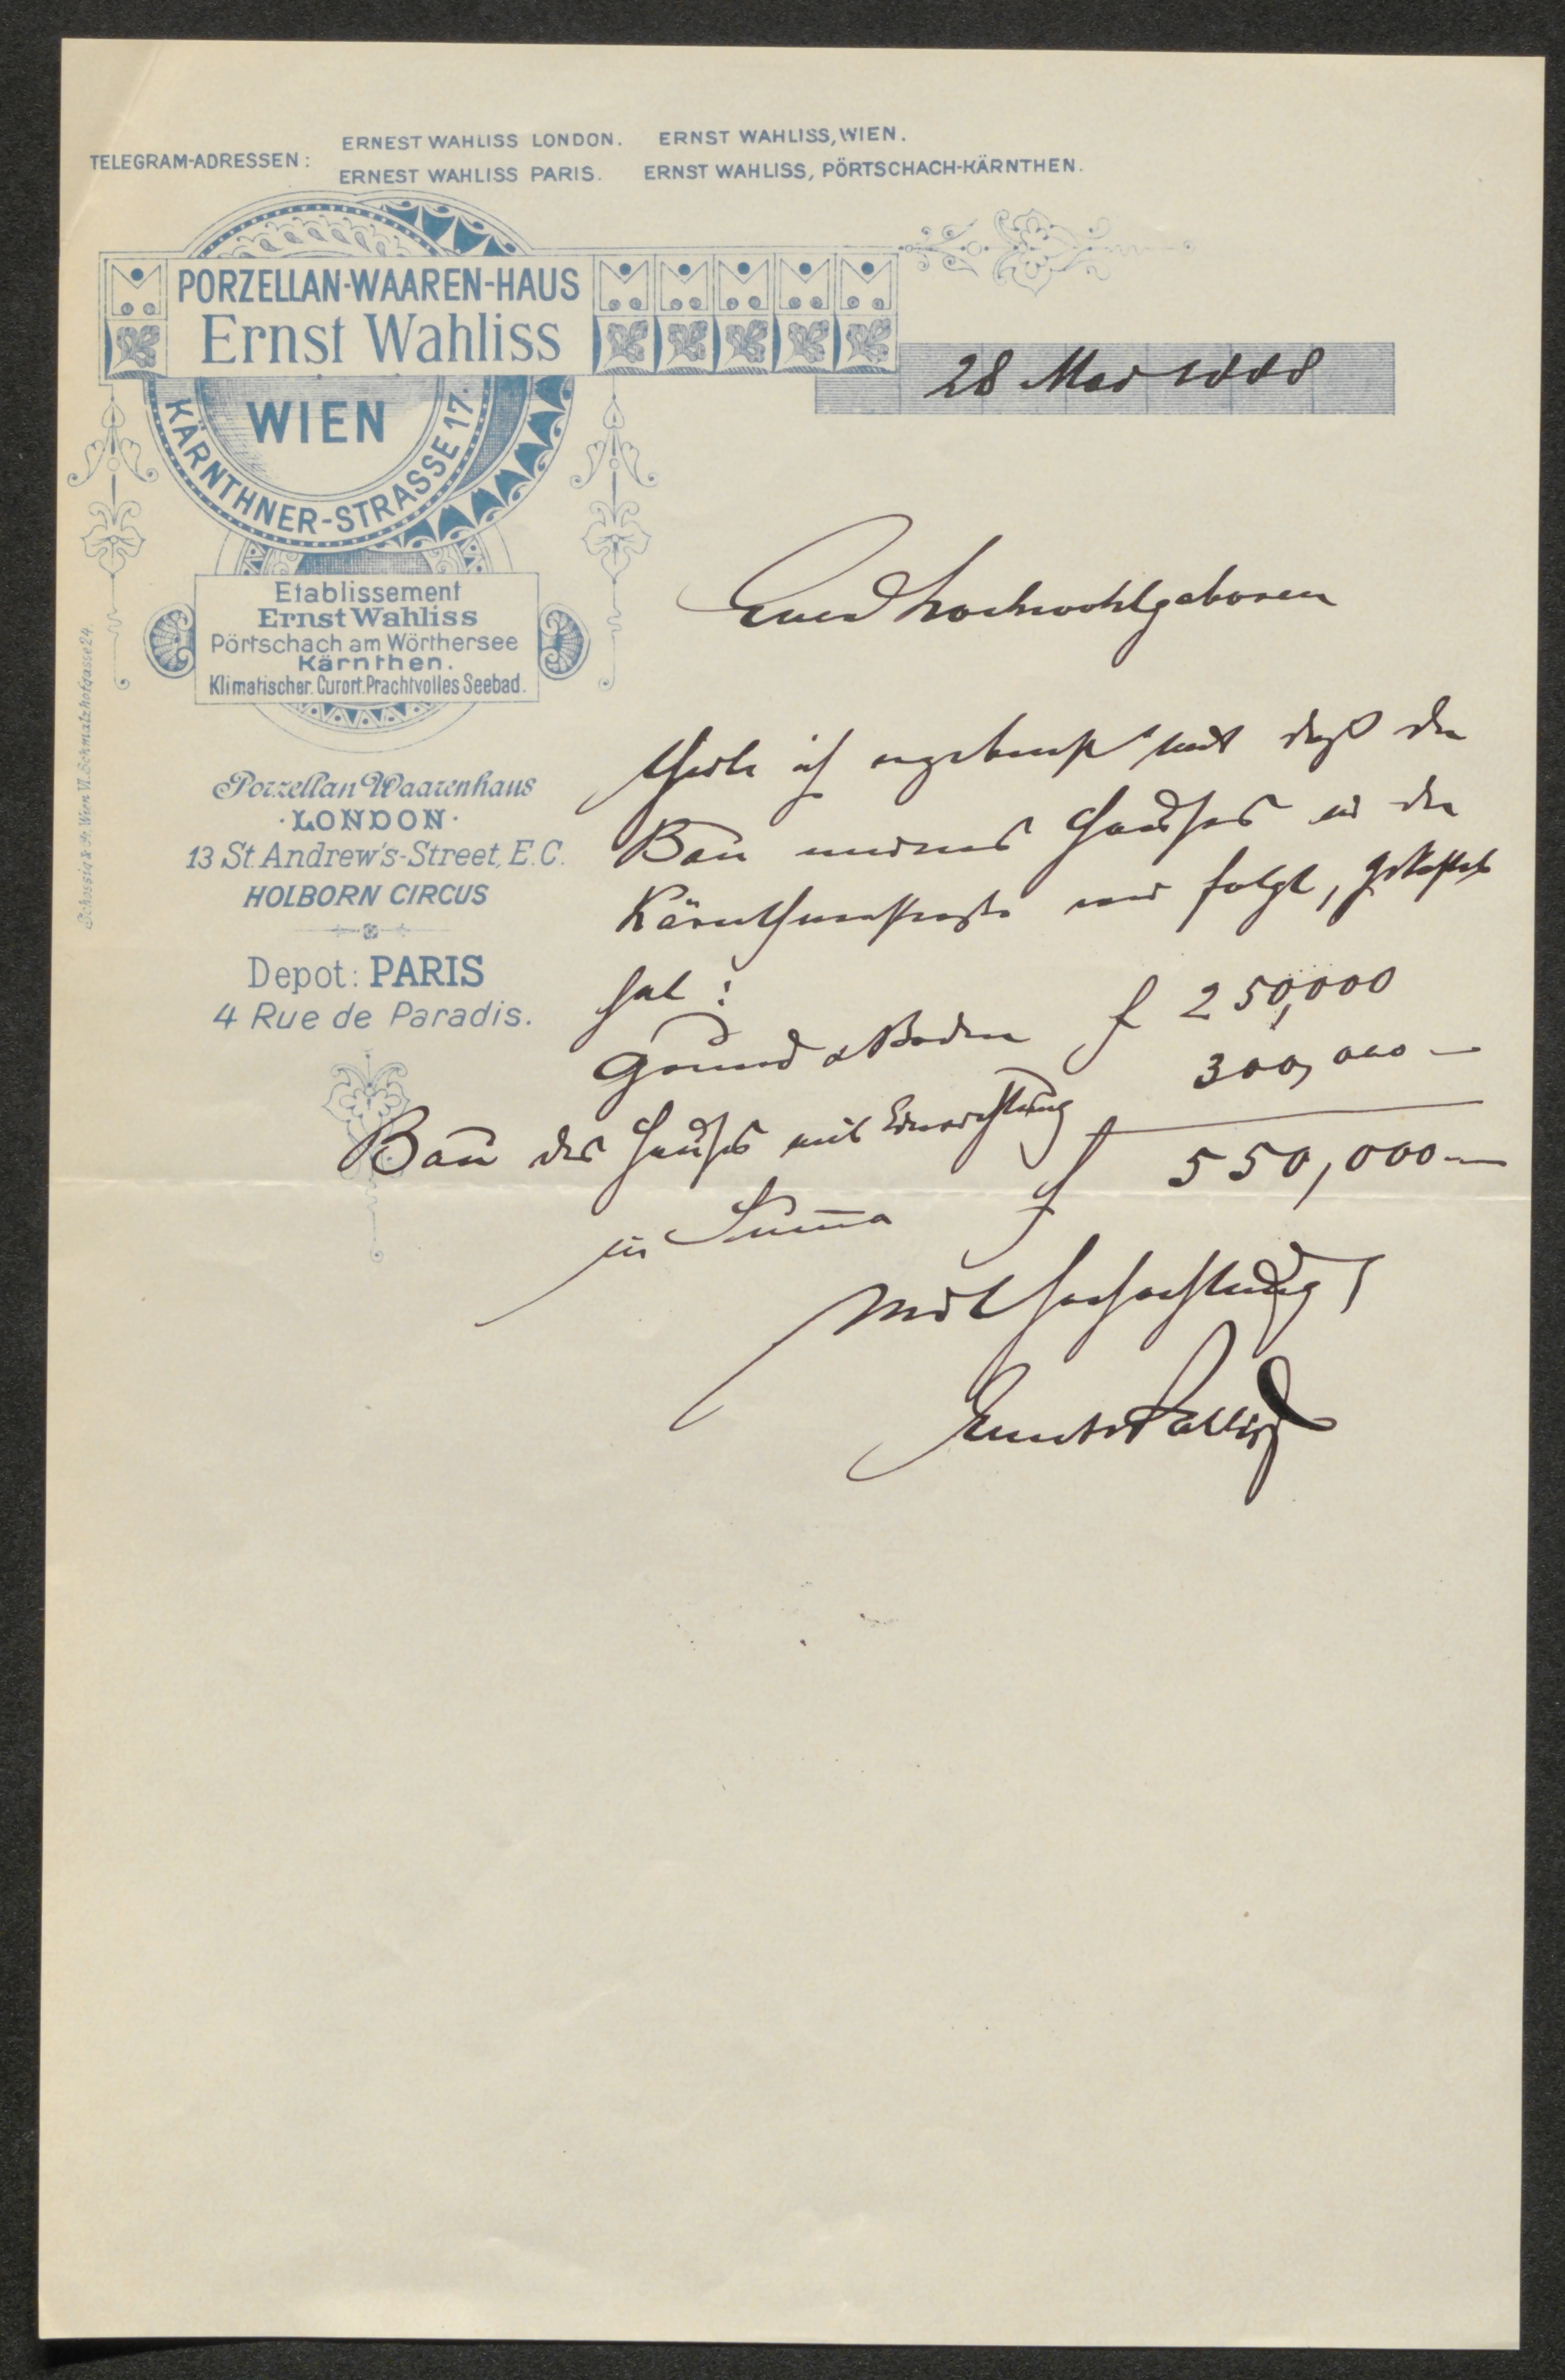 TELEGRAM-ADRESSEN:
ERNEST WAHLISS LONDON. ERNST WAHLISS, WIEN.
ERNEST WAHLISS PARIS. ERNST WAHLISS, PÖRTSCHACH-KÄRNTHEN.
PORZELLAN-WAAREN-HAUS
Ernst Wahliss
WIEN
KÄRNTHNER-STRASSE 17.
28 Mai 1888
Etablissement
Ernst Wahliss
Pörtschach am Wörthersee
Kärnthen.
Klimatischer Curort. Prachtvolles Seebad.
Porzellan Waarenhaus
·LONDON·
13 St. Andrew's-Street, E.C.
HOLBORN CIRCUS
Depot: PARIS
4 Rue de Paradis.
Wien VI. Schmalzhofgasse 24.
Euer Hochwohlgeboren
theile ich ergebenst mit daß der
Bau meines Hauses in der
Kärnthnerstraße wie folgt, gekostet
hat:
Grund & Boden f 250,000
Bau des Hauses mit Einrichtung 300,000 —
in Suma̅ f 550,000 —
Mit Hochachtung
Ernst Wahliss